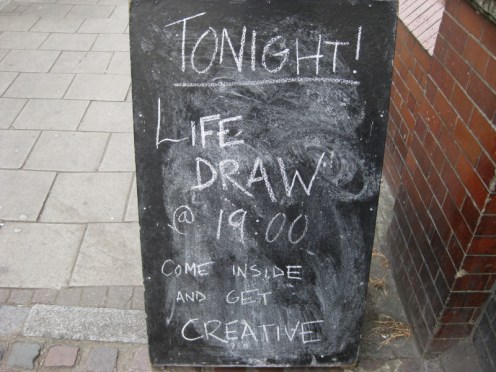 TONIGHT!
LIFE
DRAW
@ 19:00
COME INSIDE
AND GET
CREATIVE